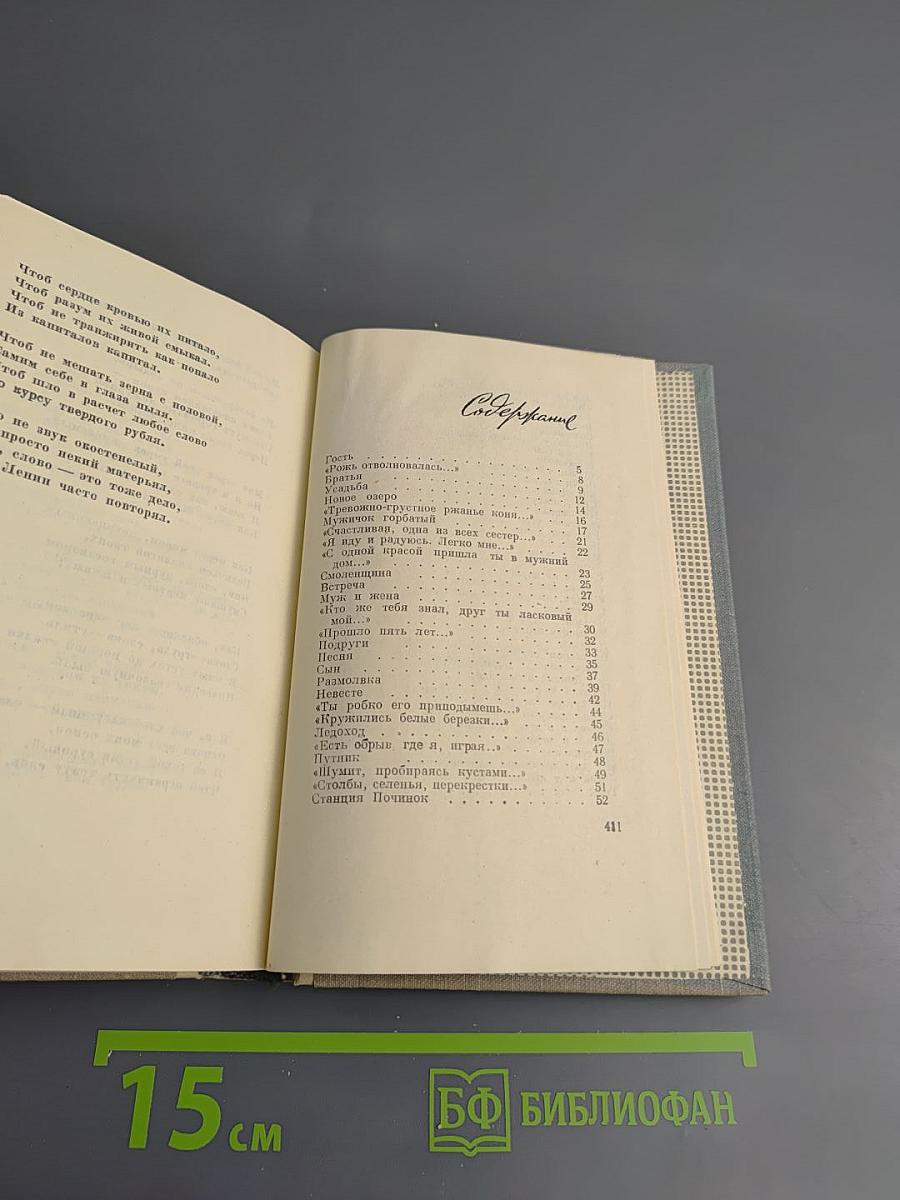 Чтоб сердце кровью их питало,
Чтоб разум их живой смыкал.
Чтоб не транжирить как попало
Из капиталов капитал.
Чтоб не мешать зерна с половой,
Самим себе в глаза пыля.
Чтоб шло в расчет любое слово
курсу твердого рубля.
не звук окостенелый,
просто некий матерьял,
слово — это тоже дело,
Ленин часто повторял.
Содержание
Гость . . . . . . . . . . . . . . . . 5
«Рожь отволновалась...» . . . . . . . . . 8
Братья . . . . . . . . . . . . . . . 9
Усадьба . . . . . . . . . . . . . . . 12
Новое озеро . . . . . . . . . . . . . 14
«Тревожно-грустное ржанье коня...» . . . . 16
Мужичок горбатый . . . . . . . . . . . 17
«Счастливая, одна из всех сестер...» . . . 21
«Я иду и радуюсь. Легко мне...» . . . . 22
«С одной красой пришла ты в мужний
дом...» . . . . . . . . . . . . . . 23
Смоленщина . . . . . . . . . . . . . 25
Встреча . . . . . . . . . . . . . . . 27
Муж и жена . . . . . . . . . . . . . 29
«Кто же тебя знал, друг ты ласковый
мой...» . . . . . . . . . . . . . . 30
«Прошло пять лет...» . . . . . . . . . 32
Подруги . . . . . . . . . . . . . . . 33
Песня . . . . . . . . . . . . . . . . 35
Сын . . . . . . . . . . . . . . . . . 37
Размолвка . . . . . . . . . . . . . . 39
Невесте . . . . . . . . . . . . . . . 42
«Ты робко его приподымешь...» . . . . . 44
«Кружились белые березки...» . . . . . . 45
Ледоход . . . . . . . . . . . . . . . 46
«Есть обрыв, где я, играя..» . . . . . . 47
Путник . . . . . . . . . . . . . . . 48
«Шумит, пробираясь кустами...» . . . . . 49
«Столбы, селенья, перекрестки...» . . . . 51
Станция Починок . . . . . . . . . . . 52
411
15 см
БФ БИБЛИОФАН